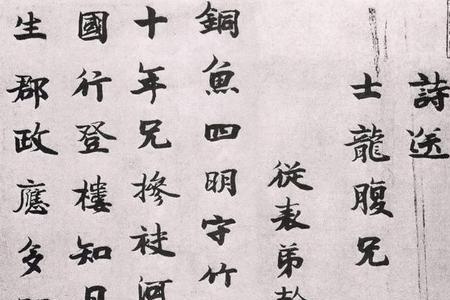 詩送
士龍腹兄
從表弟
銅魚四明守竹
十年兄摻袂河
國行登樓知
生郡政應多